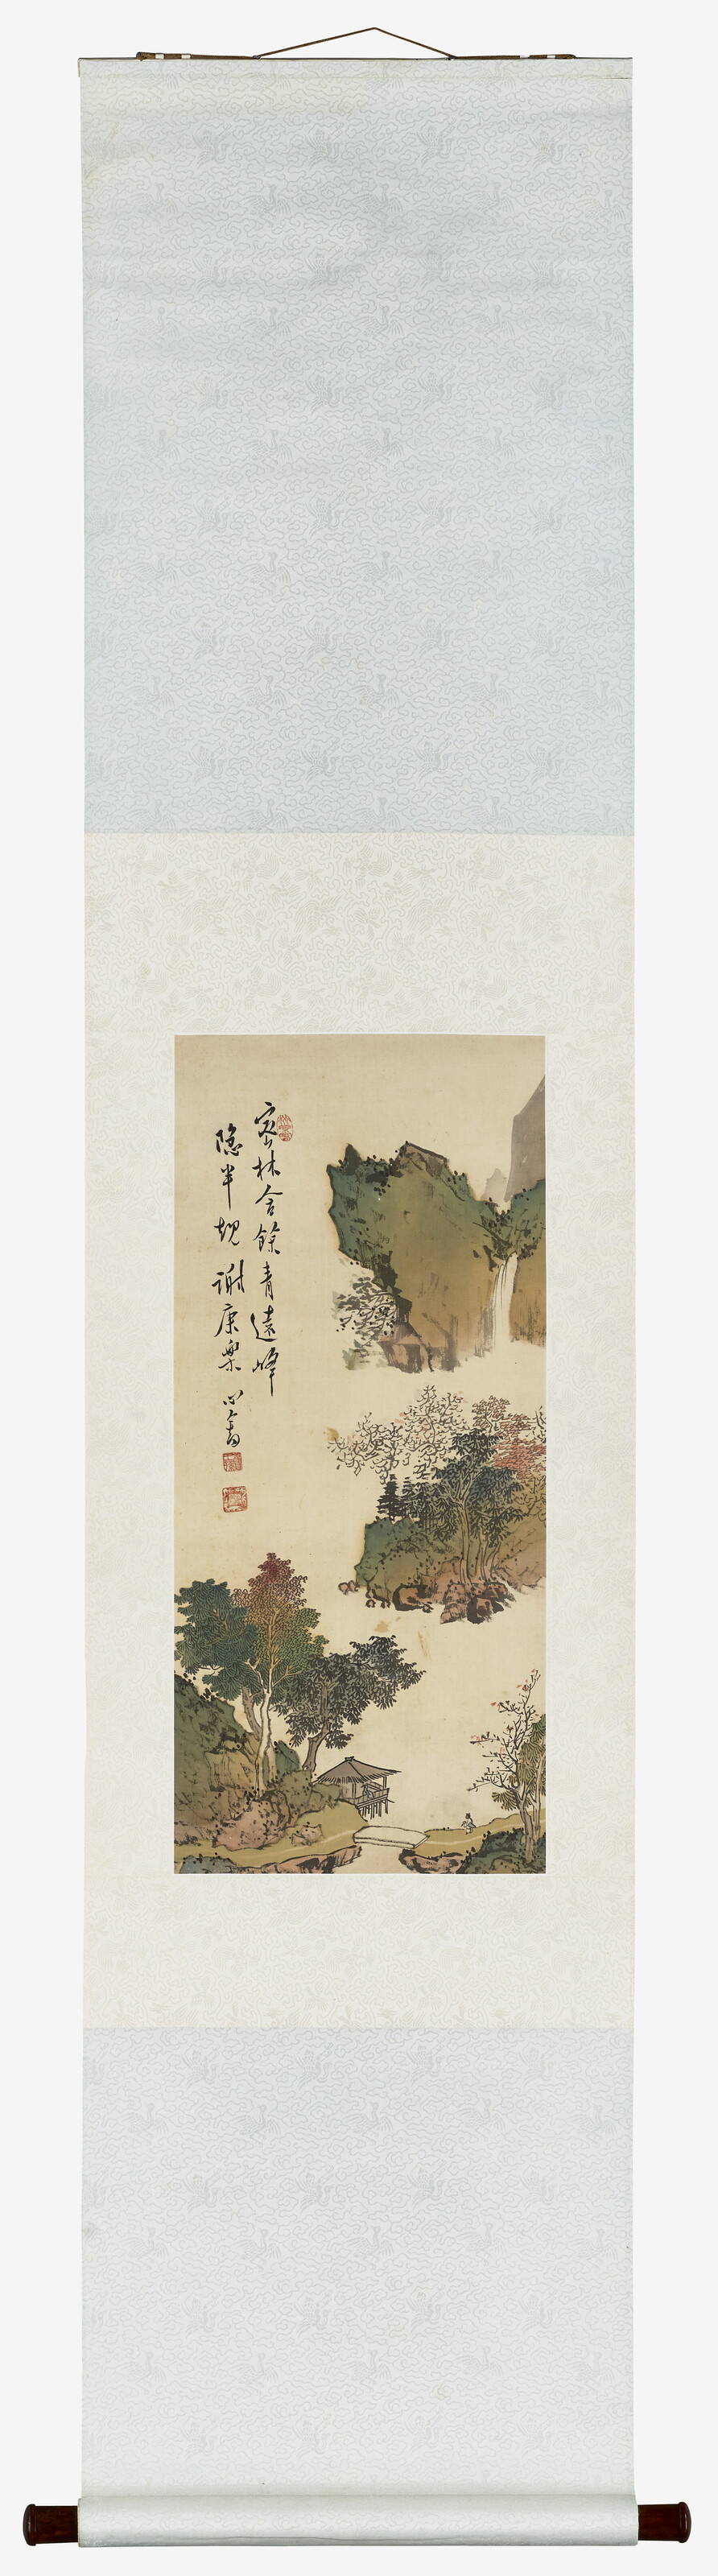 密林含餘青遠峰
隱半規 謝康樂 心畬